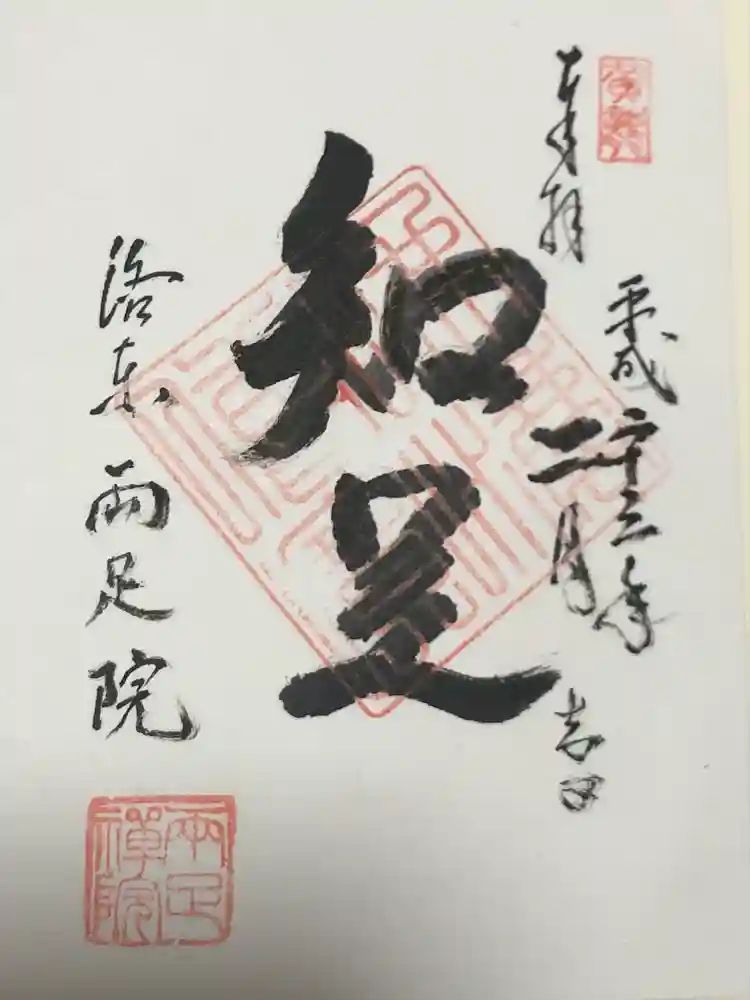 奉拝
平成二十三年
二月
吉日
知足
洛東 両足院
両足禅院